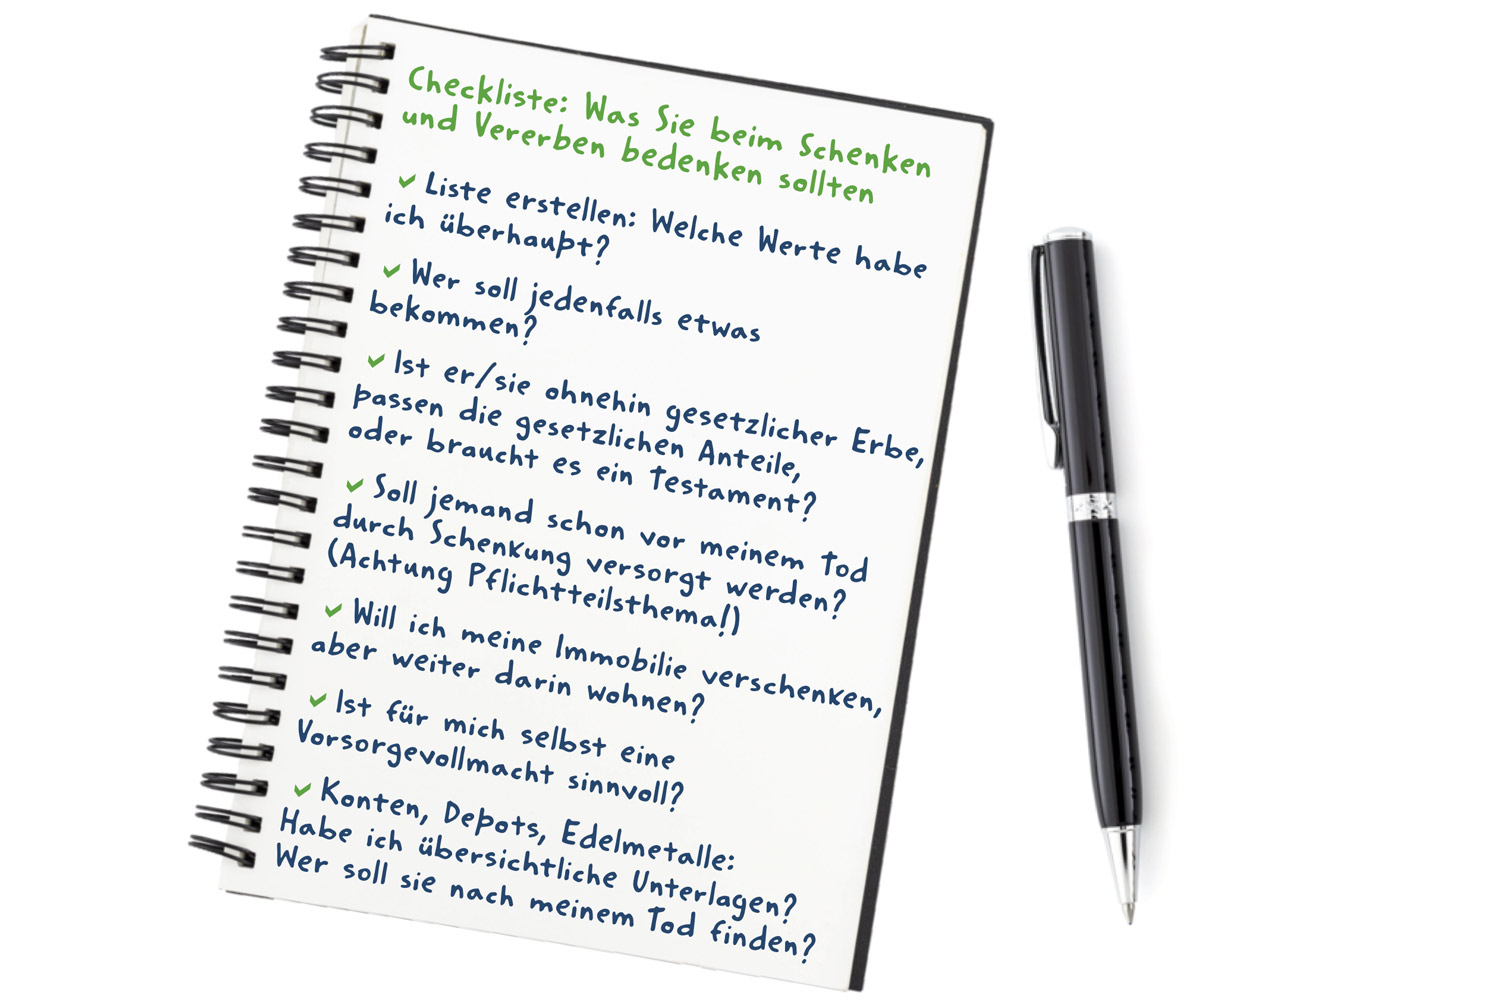 Checkliste: Was Sie beim Schenken
und Vererben bedenken sollten
✓ Liste erstellen: Welche Werte habe
ich überhaupt?
✓ Wer soll jedenfalls etwas
bekommen?
✓ Ist er/sie ohnehin gesetzlicher Erbe,
passen die gesetzlichen Anteile,
oder braucht es ein Testament?
✓ Soll jemand schon vor meinem Tod
durch Schenkung versorgt werden?
(Achtung Pflichtteilsthema!)
✓ Will ich meine Immobilie verschenken,
aber weiter darin wohnen?
✓ Ist für mich selbst eine
Vorsorgevollmacht sinnvoll?
✓ Konten, Depots, Edelmetalle:
Habe ich übersichtliche Unterlagen?
Wer soll sie nach meinem Tod finden?